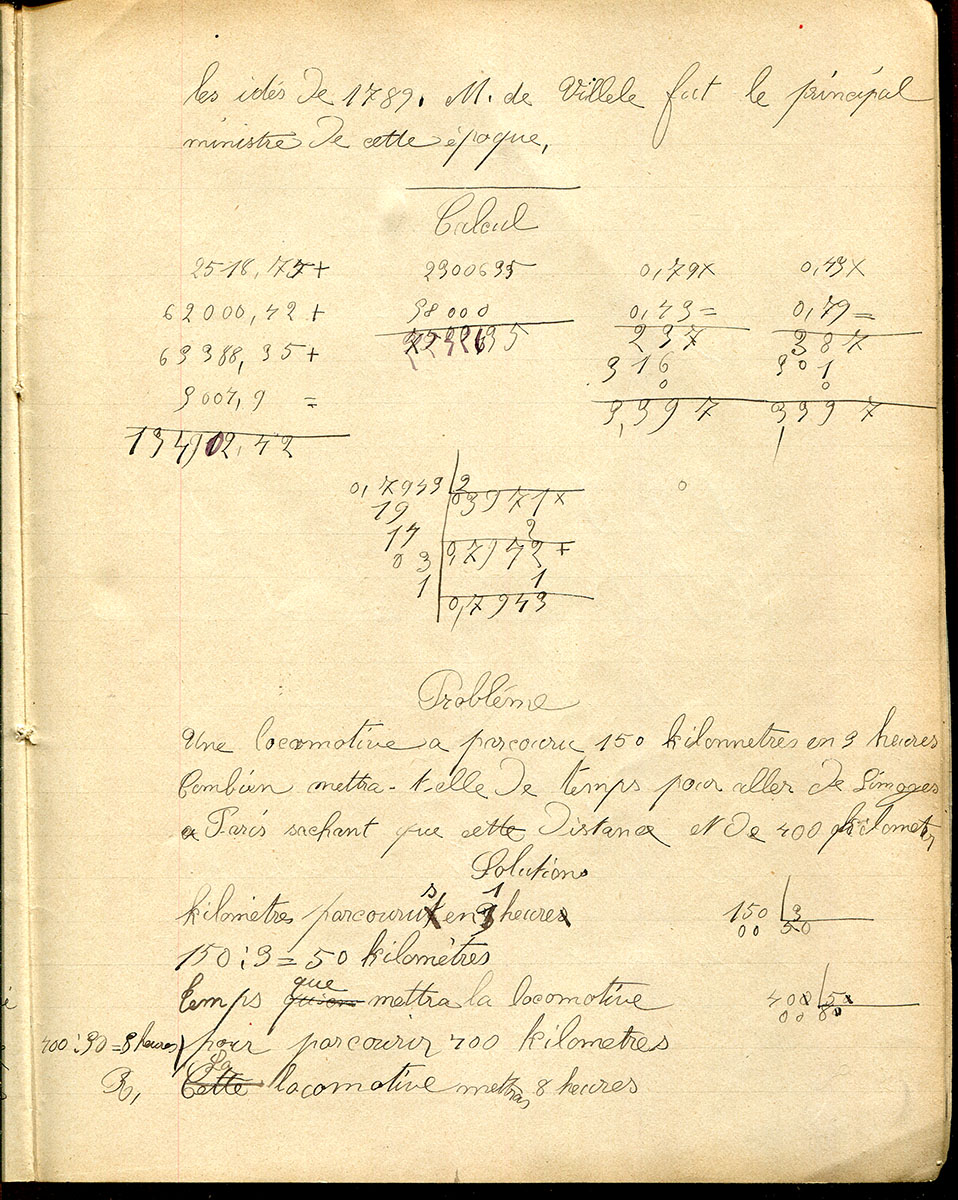 les idés de 1789. M. de Villele fut le principal
ministre de cette époque,
Calcul
2518,75+ 2300635 0,79x 0,43x
62000,42 + 38000 0,43= 0,79=
69388,35+ 237 387
3004,9 = 316 301
0 0
134912,42 3,397 3397
0,7943 2
19 03971x
17 2
0 3 0,7942+
1 1
0,7943
Probléme
Une locomotive a parcouru 150 kilonnetres en 3 heures
Combien mettra-t-elle de temps pour aller de Limoges
a Paris sachant que cette distance et de 400 kilometr
Solutions
kilomètres parcourus en 1 heure 150 3
00 50
150:3=50 kilomètres
Temps que mettra la locomotive 400 50
00 80
400:50=8 heures pour parcourir 400 kilometres
R, La locomotive mettra 8 heures